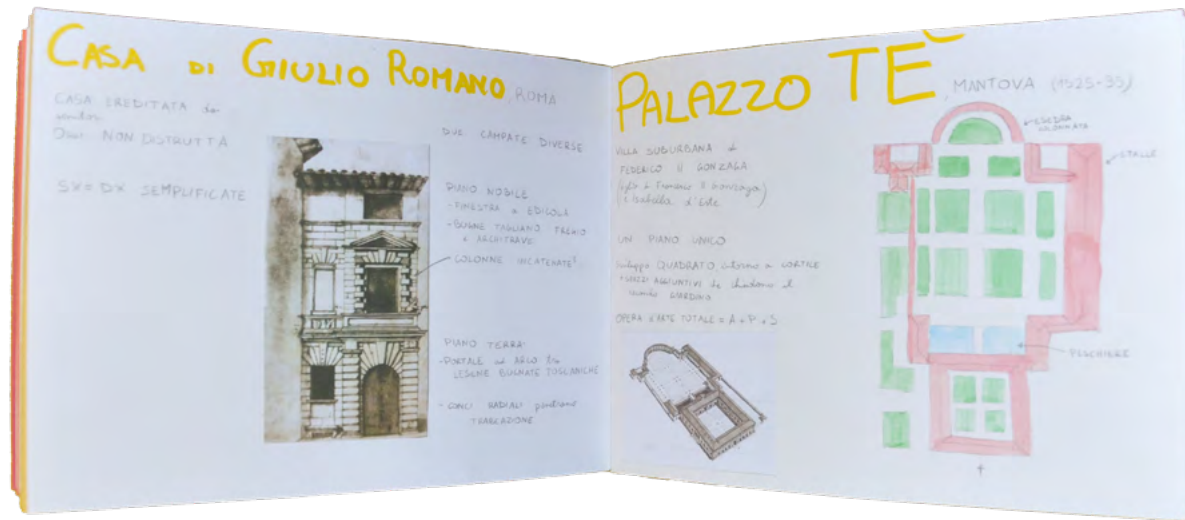 CASA DI GIULIO ROMANO, ROMA
CASA EREDITATA da
NON DISTRUTTA
SX = DX SEMPLIFICATE
DUE CAMPATE DIVERSE
PIANO NOBILE
- FINESTRA a EDICOLA
- BUGNE TAGLIANO FREGIO
e ARCHITRAVE
- COLONNE INCATENATE
PIANO TERRA:
- PORTALE ad ARCO tra
LESENE BUGNATE TOSCANICHE
- CONCI RADIALI
TRABEAZIONE
PALAZZO TE, MANTOVA (1525-35)
VILLA SUBURBANA di
FEDERICO II GONZAGA
(figlio di Francesco II Gonzaga
e Isabella d'Este)
UN PIANO UNICO
sviluppo QUADRATO, intorno a CORTILE
AGGIUNTIVI che chiudono il
GIARDINO
OPERA D'ARTE TOTALE = A + P + S
ESEDRA
COLONNATA
STALLE
PESCHIERE